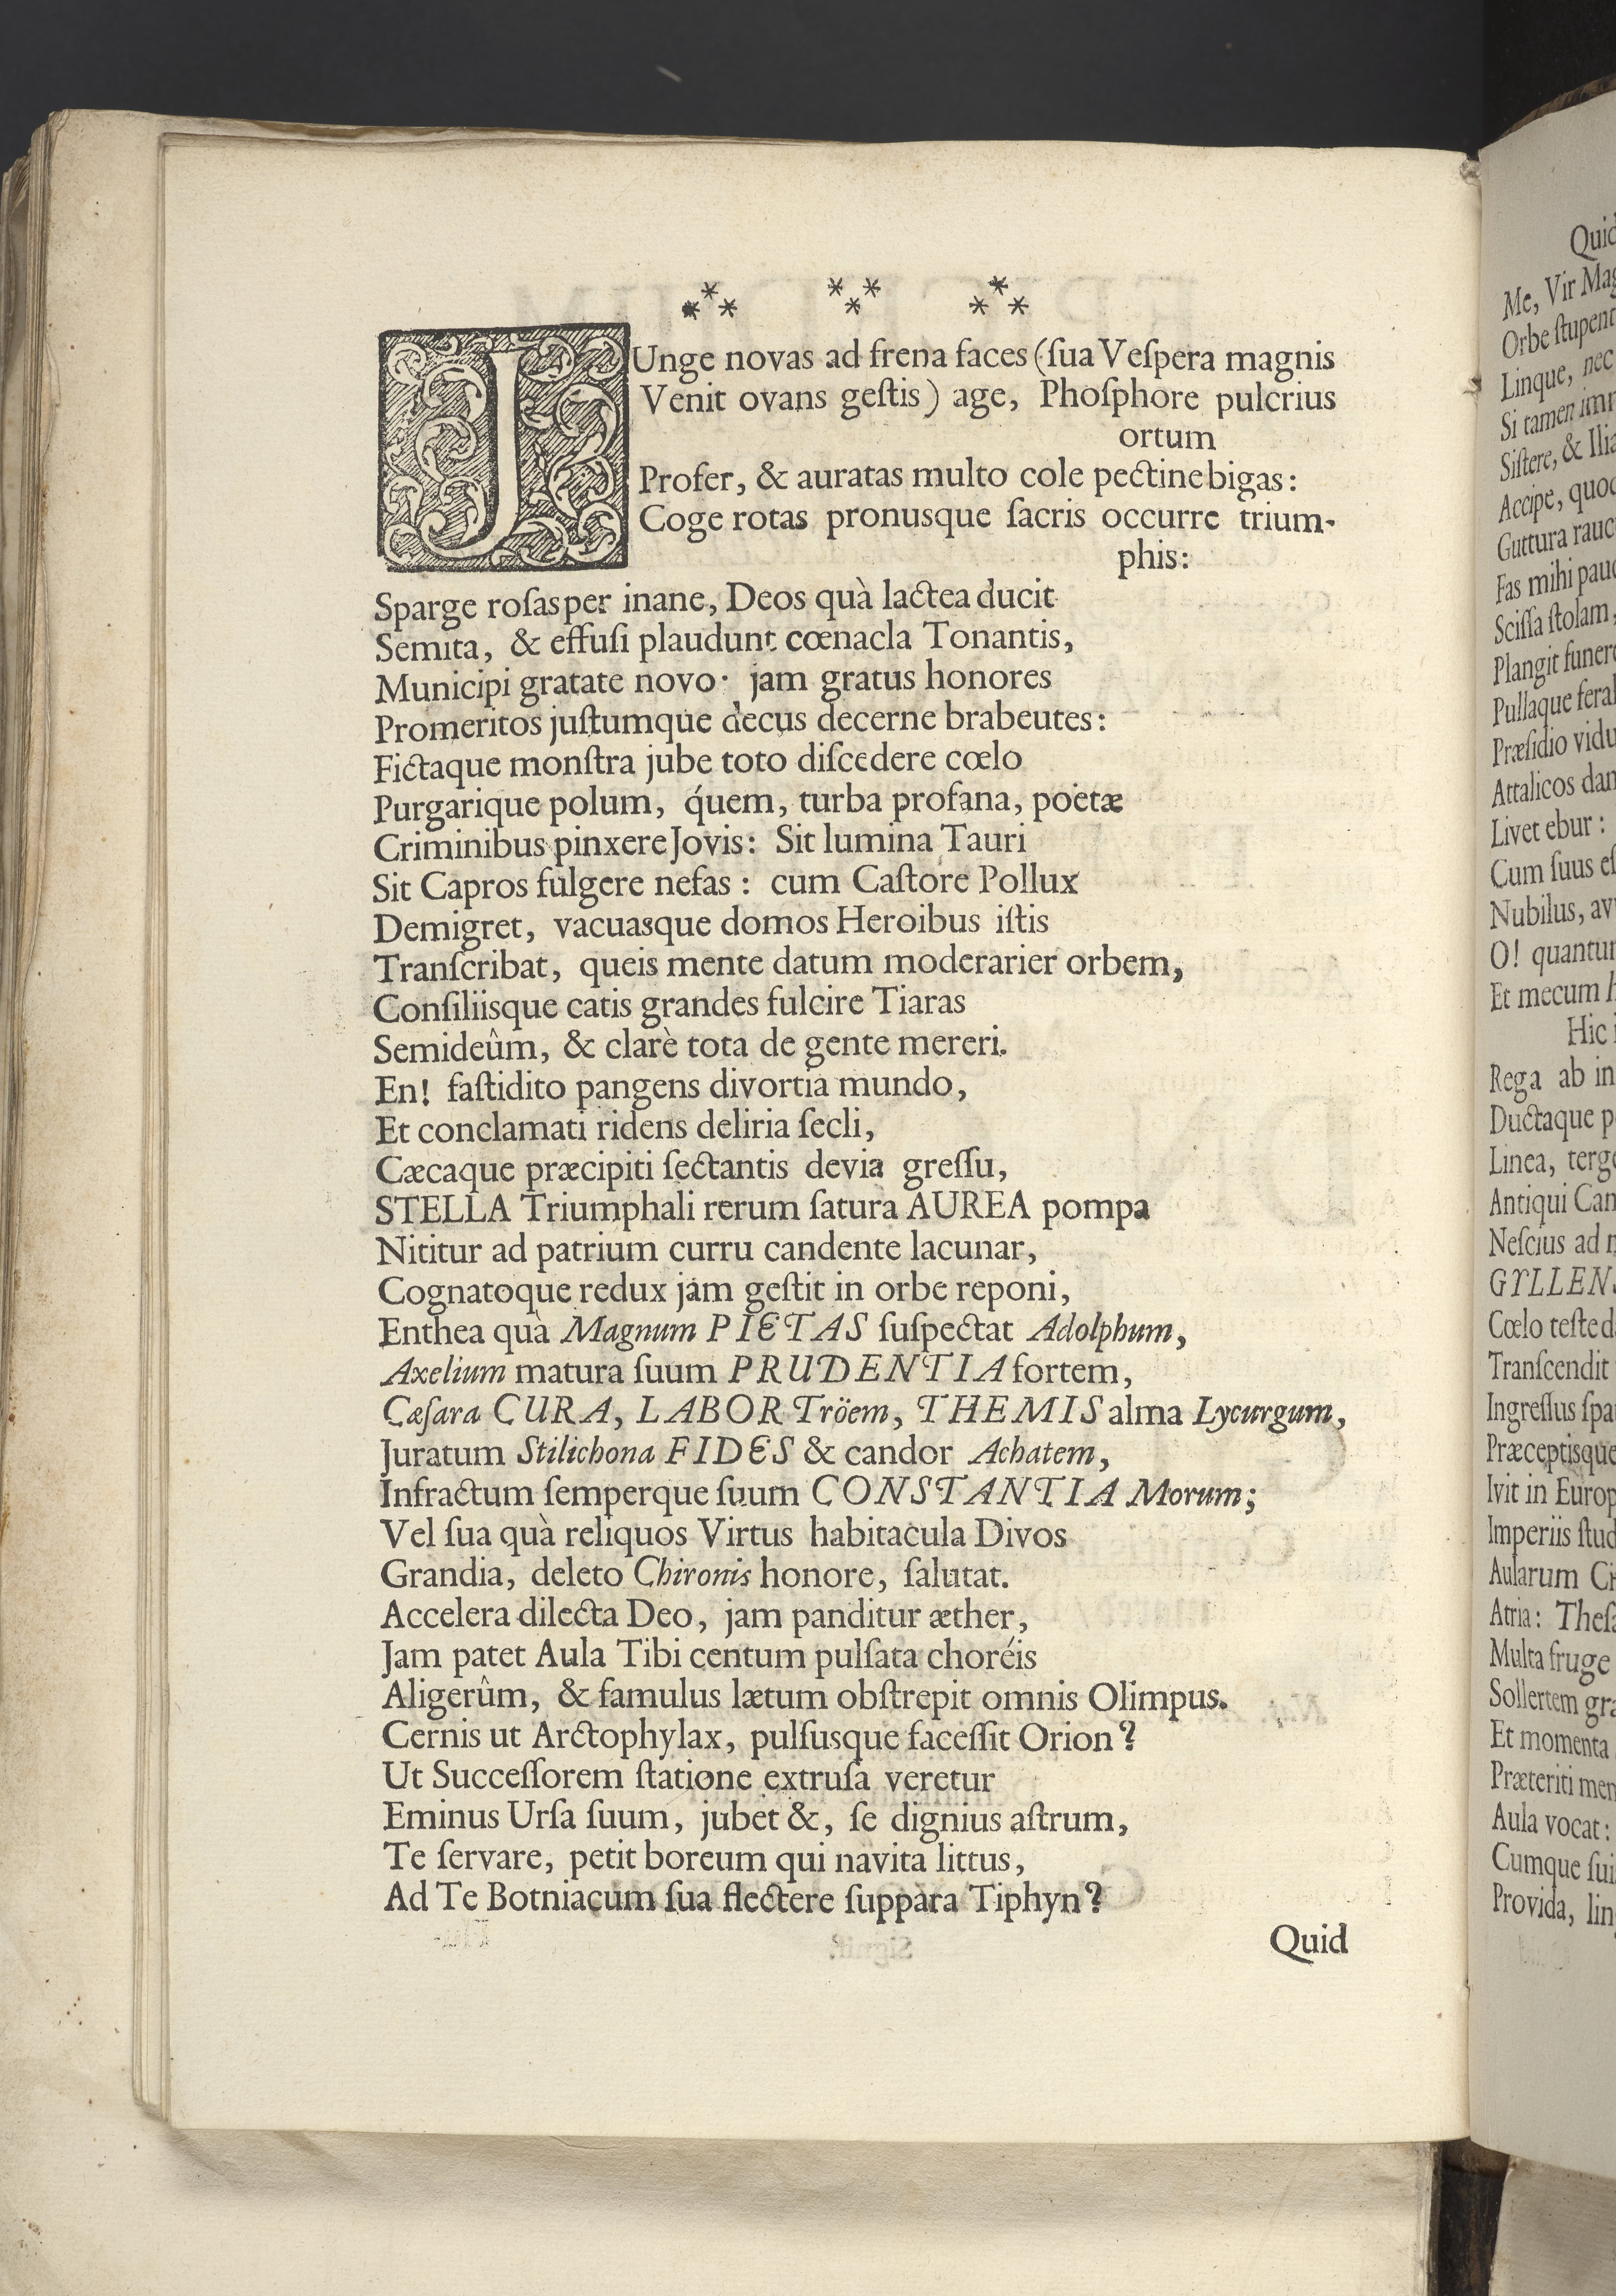 JUnge novas ad frena faces (ſua Veſpera magnis
Venit ovans geſtis) age, Phoſphore pulcrius
ortum
Profer, & auratas multo cole pectine bigas:
Coge rotas pronusque ſacris occurre trium-
phis:
Sparge roſas per inane, Deos quà lactea ducit
Semita, & effuſi plaudunt cœnacla Tonantis,
Municipi gratate novo· jam gratus honores
Promeritos juſtumque decus decerne brabeutes:
Fictaque monſtra jube toto diſcedere cœlo
Purgarique polum, q́uem, turba profana, poëtæ
Criminibus pinxere Jovis: Sit lumina Tauri
Sit Capros fulgere nefas: cum Caſtore Pollux
Demigret, vacuasque domos Heroibus iſtis
Tranſcribat, queis mente datum moderarier orbem,
Conſiliisque catis grandes fulcire Tiaras
Semideûm, & clarè tota de gente mereri.
En! faſtidito pangens divortia mundo,
Et conclamati ridens deliria ſecli,
Cæcaque præcipiti ſectantis devia greſſu,
STELLA Triumphali rerum ſatura AUREA pompa
Nititur ad patrium curru candente lacunar,
Cognatoque redux jam geſtit in orbe reponi,
Enthea quà Magnum PIETAS ſuſpectat Adolphum,
Axelium matura ſuum PRUDENTIA fortem,
Cæſara CURA, LABOR Tröem, THEMIS alma Lycurgum,
Juratum Stilichona FIDES & candor Achatem,
Infractum ſemperque ſuum CONSTANTIA Morum;
Vel ſua quà reliquos Virtus habitacula Divos
Grandia, deleto Chironis honore, ſalutat.
Accelera dilecta Deo, jam panditur æther,
Jam patet Aula Tibi centum pulſata choréis
Aligerûm, & famulus lætum obſtrepit omnis Olimpus.
Cernis ut Arctophylax, pulſusque faceſſit Orion?
Ut Succeſſorem ſtatione extruſa veretur
Eminus Urſa ſuum, jubet &, ſe dignius aſtrum,
Te ſervare, petit boreum qui navita littus,
Ad Te Botniacum ſua flectere ſuppara Tiphyn?
Quid
Me, Vir
Orbe
Linque, nec
Si tamen
Siſtere, &
Accipe,
Guttura
Fas mihi
Sciſſa ſtolam,
Plangit
Pullaque
Præſidio
Attalicos
Livet ebur:
Cum ſuus
Nubilus,
O!
Et mecum
Hic
Rega ab
Ductaque
Linea,
Antiqui
Neſcius ad
Cœlo teſte
Tranſcendit
Ingreſſus
Præceptisque
Ivit in
Imperiis
Aularum
Atria:
Multa fruge
Sollertem
Et momenta
Præteriti
Aula vocat:
Cumque
Provida,